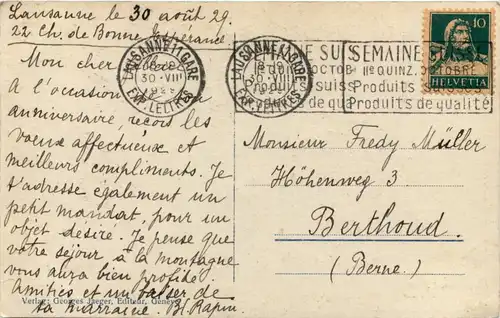 Lausanne le 30 août 29.
22 Ch. de Bonne Espérance
Mon cher
A l'occasion
anniversaire, reçois les
vœux affectueux et
meilleurs compliments. Je
t'adresse également un
petit mandat, pour un
objet désiré. Je pense que
votre séjour à la montagne
vous aura bien profité
Amitiés et un baiser de
ta marraine. Bl. Rapin.
Verlag: Georges Jaeger, Editeur, Genève
LAUSANNE 1 GARE
30.VIII
EXP. LETTRES
LAUSANNE 1 GARE
EXP. LETTRES
SEMAINE
IIe QUINZ. OCTOBRE
Produits
Produits de qualité
10
HELVETIA
Monsieur Fredy Müller
Höhenweg 3
Berthoud.
(Berne.)